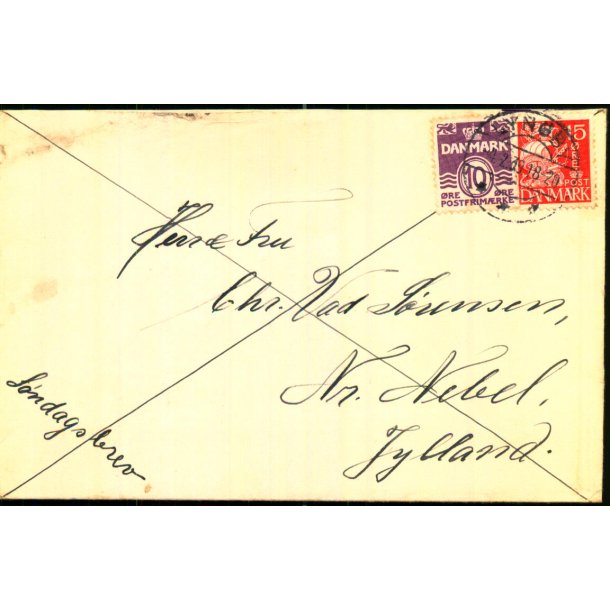 DANMARK
10
ØRE ØRE
POSTFRIMÆRKE
15
POST
DANMARK
Herre Fru
Chr. Vad Sørensen,
Nr. Nebel,
Jylland.
Søndagsbrev